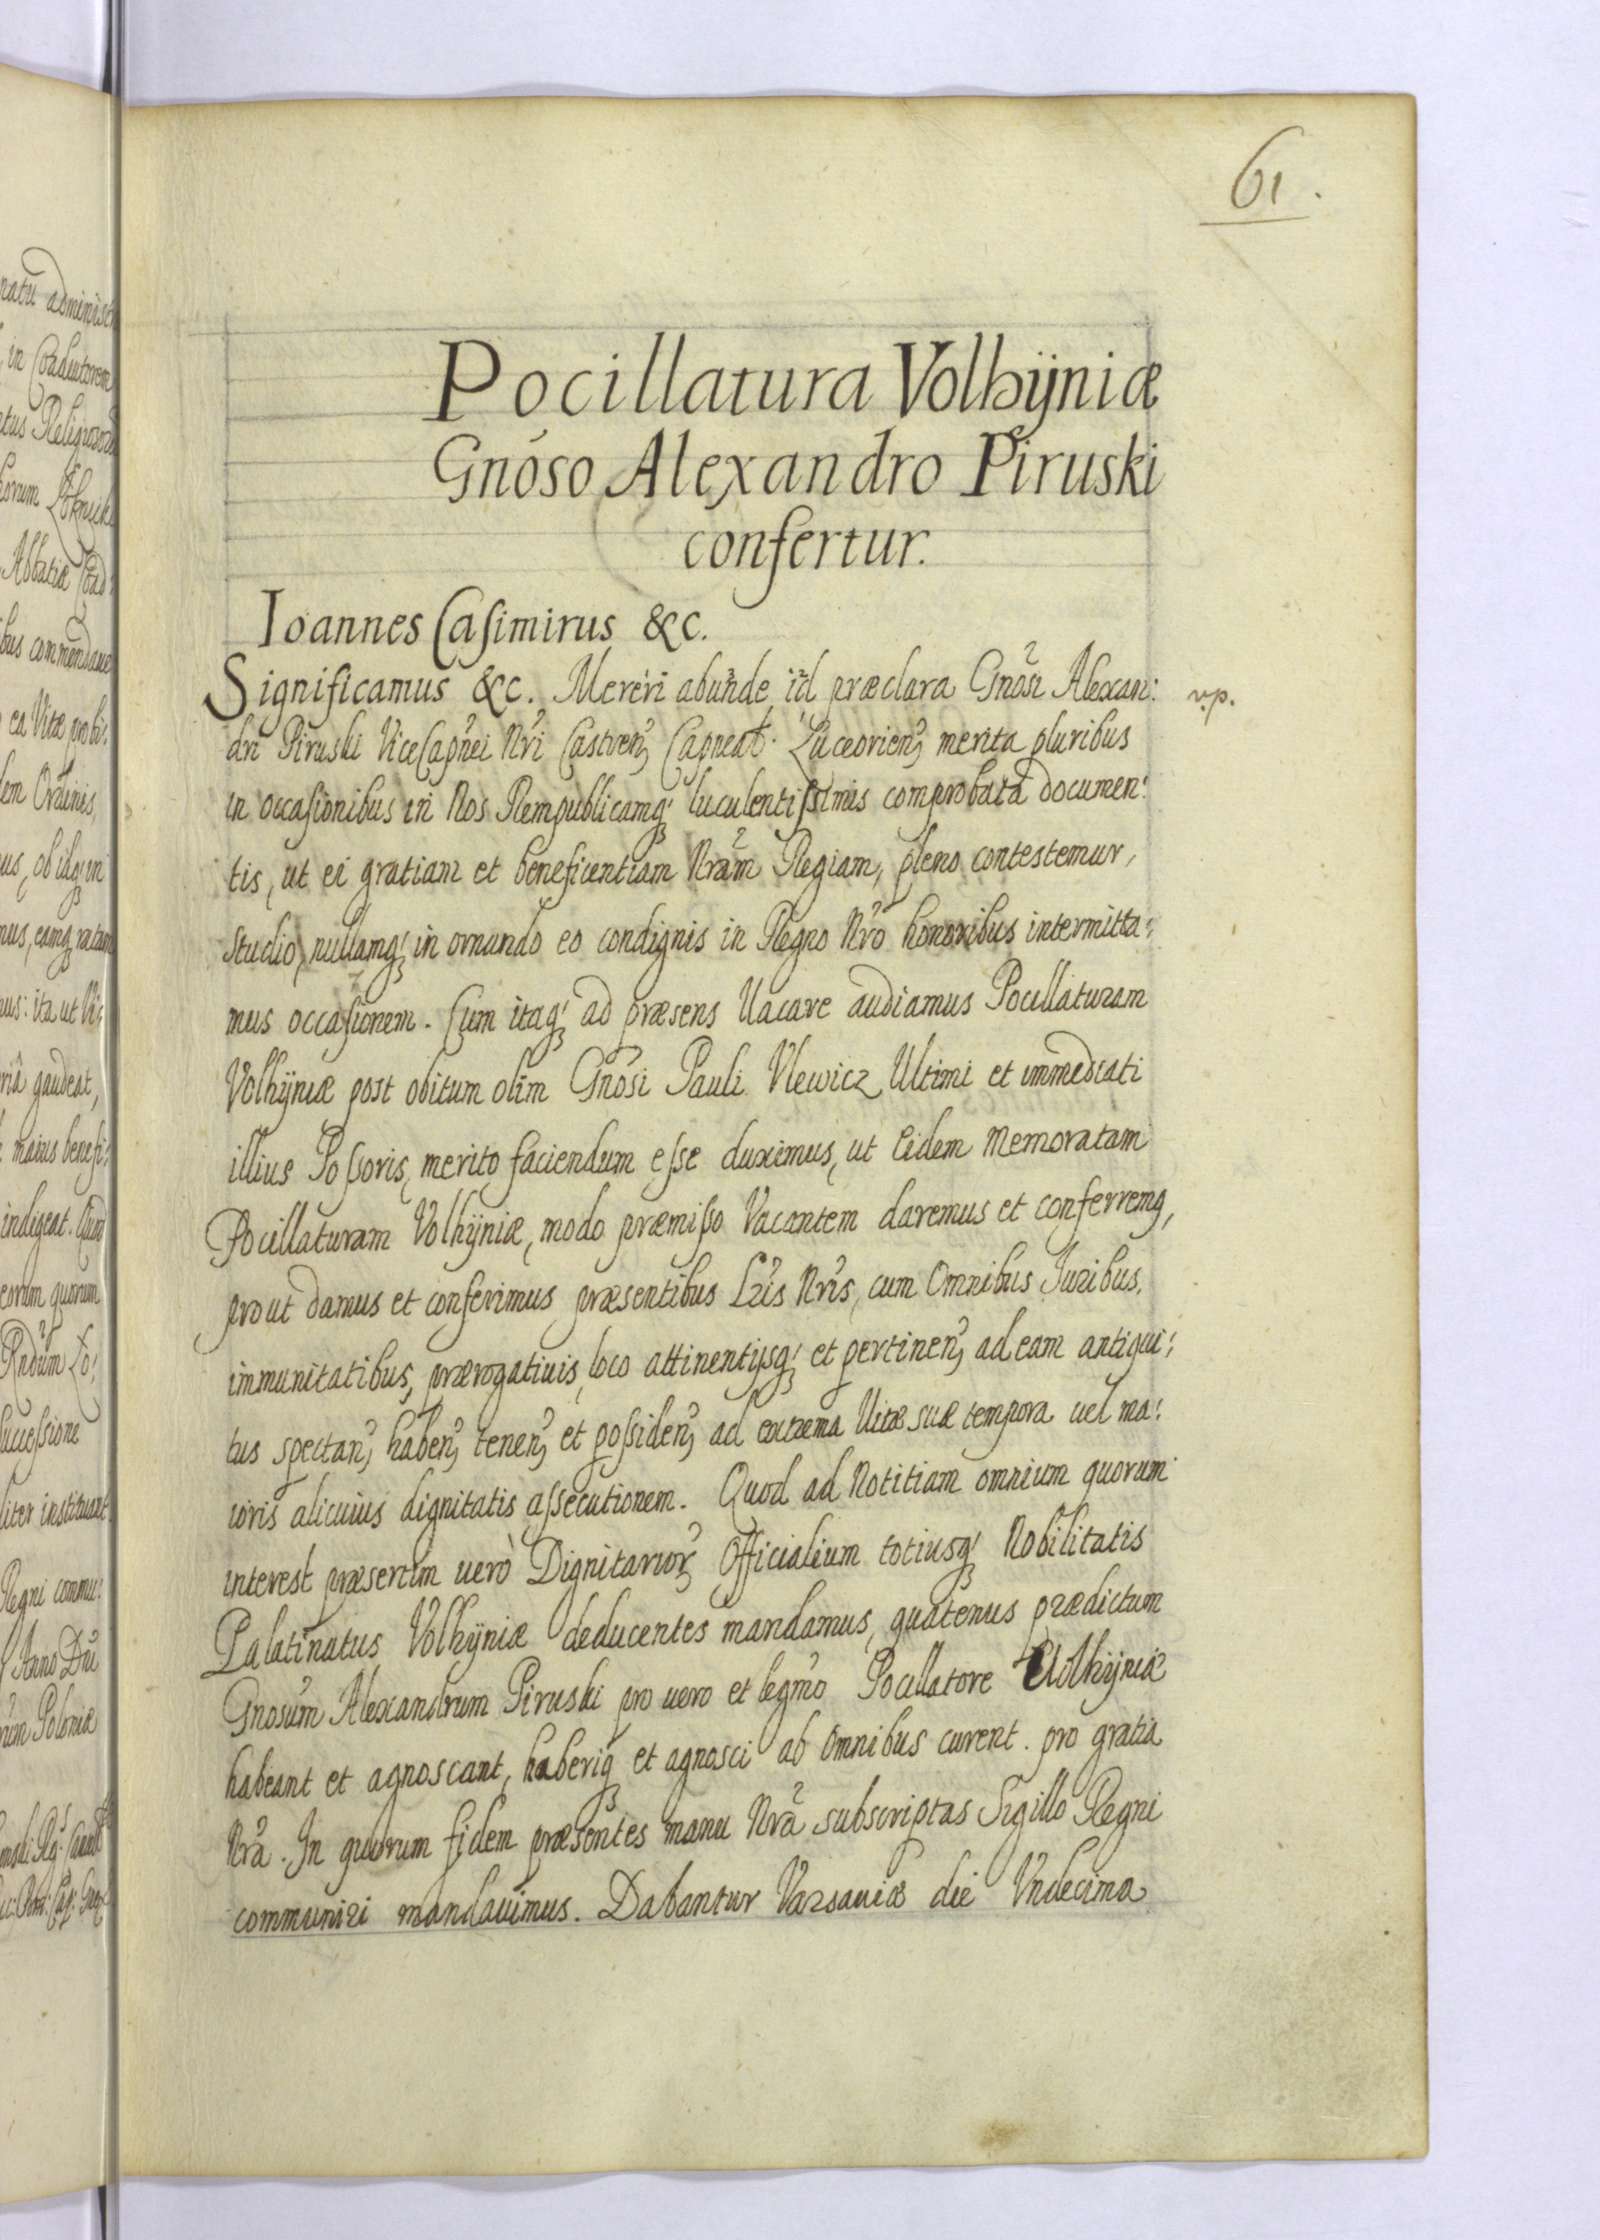 61.
Pocillatura Volhÿniæ
Gnoso Alexandro Piruski
confertur.
Ioannes Casimirus &c.
Significamus &c. Mereri abunde id præclara Gnosi Alexan:
v.p.
dri Piruski ViceCapnei Nri Castren Capneat. Luceorien merita pluribus
in occasionibus in Nos Rempublicamq luculentissimis comprobata documen:
tis, ut ei gratiam et beneficentiam Nram Regiam, pleno contestemur,
studio, nullamq in ornando eo condignis in Regno Nro honoribus intermitta:
mus occasionem. Cum itaq ad præsens Uacare audiamus Pocillaturam
Volhÿniæ post obitum olim Gnosi Pauli Vlewicz Ultimi et immediati
illius Possoris, merito faciendum esse duximus, ut Eidem Memoratam
Pocillaturam Volhÿniæ, modo præmisso Vacantem daremus et conferremq,
prout damus et conferimus præsentibus Lris Nris, cum Omnibus Iuribus,
immunitatibus, prærogativis, loco attinentÿsq et pertinen, ad eam antiqui:
tus spectan, haben, tenen, et possiden, ad extrema Uitæ suæ tempora uel ma:
ioris alicuius dignitatis assecutionem. Quod ad Notitiam omnium quorum
interest præsertim uerò Dignitarior, Officialium totiusq Nobilitatis
Palatinatus Volhÿniæ deducentes mandamus, quatenus prædictum
Gnosum Alexandrum Piruski pro uero et legmo Pocillatore Volhÿniæ
habeant et agnoscant, haberiq et agnosci ab Omnibus curent. pro gratia
Nra. In quorum fidem præsentes manu Nra subscriptas Sigillo Regni
communiri mandauimus. Dabantur Varsauiæ die Vndecima